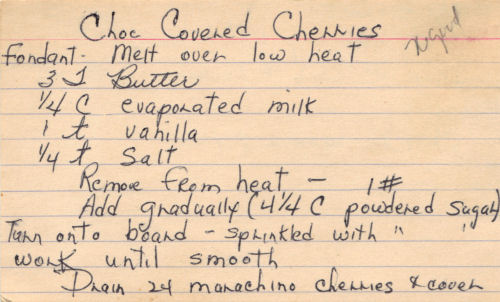 Choc Covered Cherries
Fondant - Melt over low heat
3 T Butter
1/4 C evaporated milk
1 t vanilla
1/4 t Salt
Remove from heat - 1#
Add gradually (4 1/4 C powdered Sugar)
Turn onto board - sprinkled with " "
work until smooth
Drain 24 marachino cherries & cover